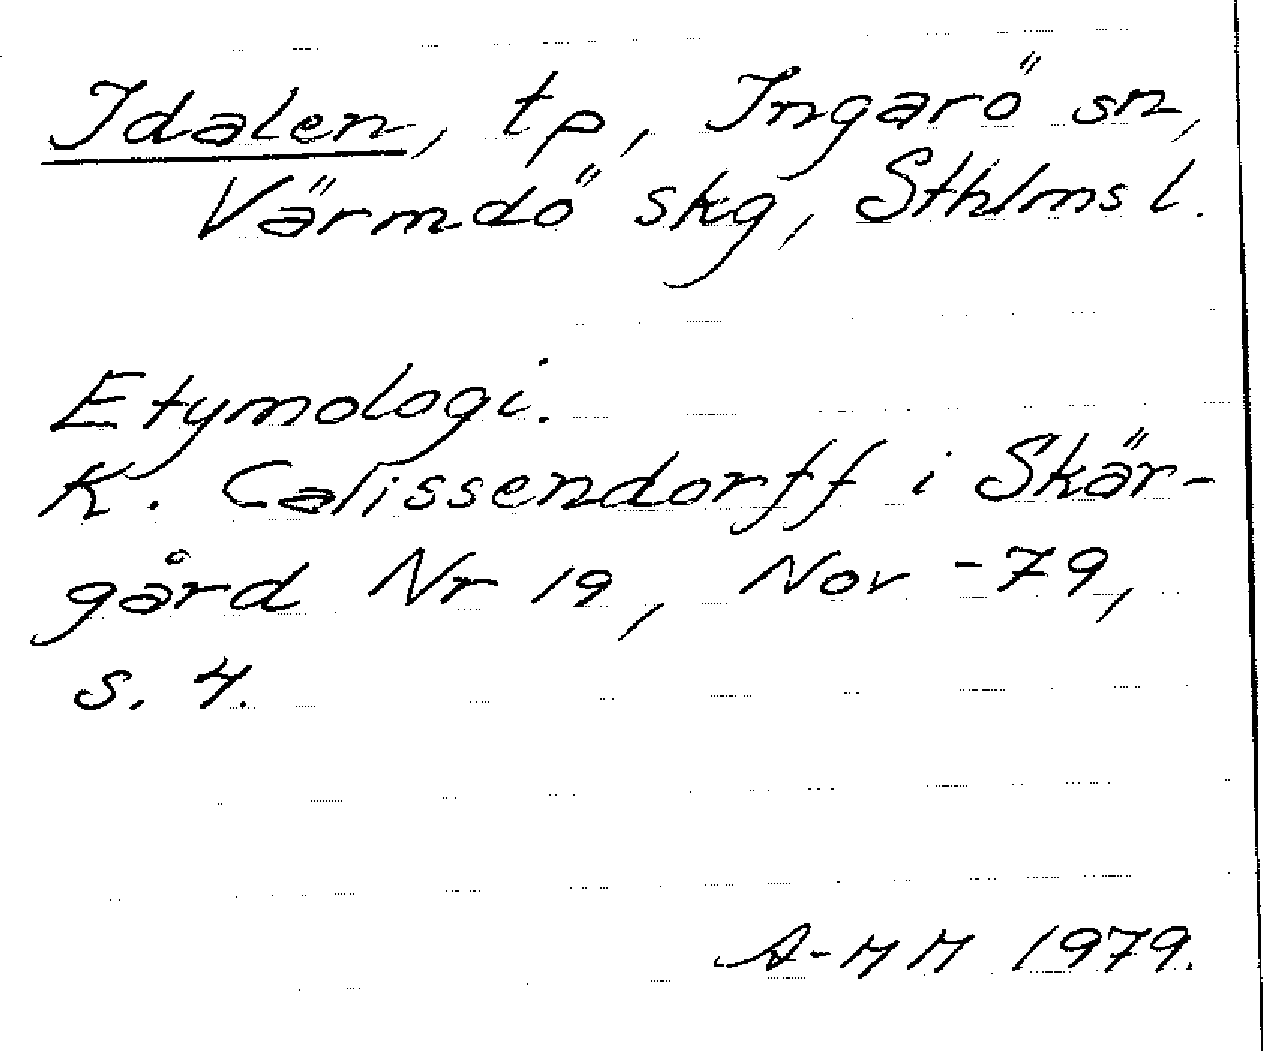 Idalen, tp, Ingarö sn,
Värmdö skg, Sthlms l.
Etymologi.
K. Calissendorff i Skär-
gård Nr 19, Nov -79,
s. 4.
A-MM 1979.